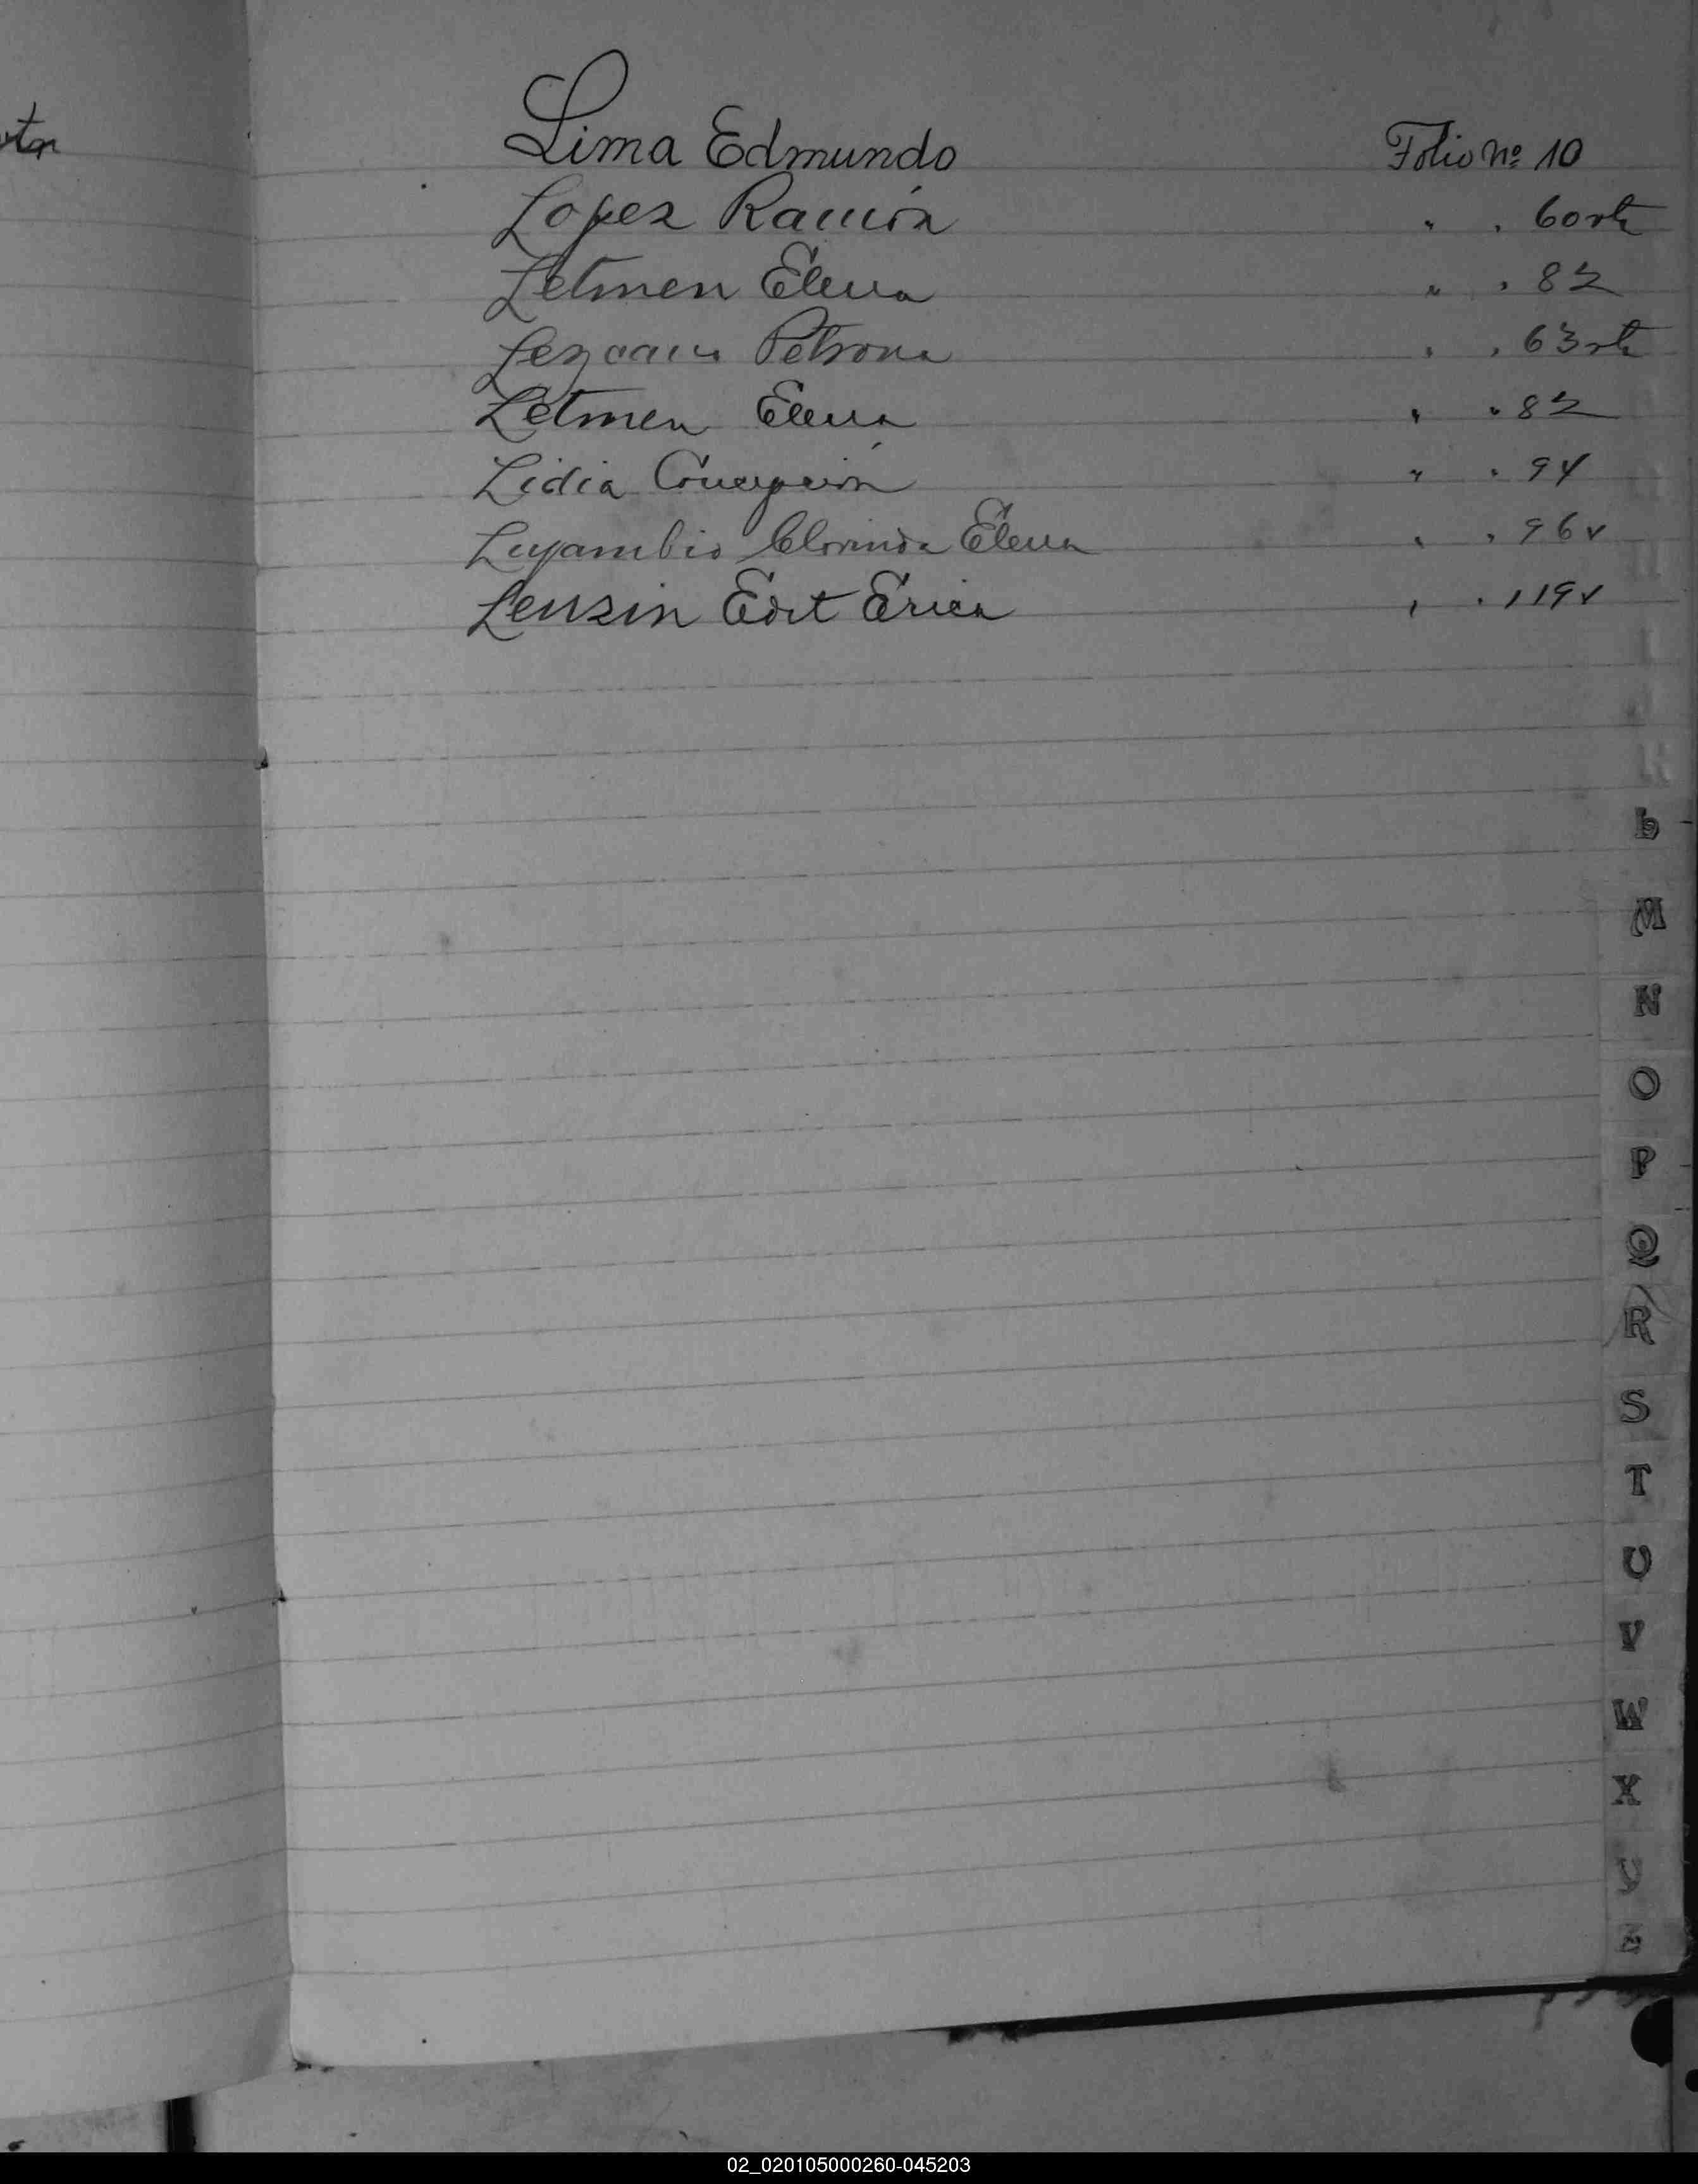 Lima Edmundo Folio Nº 10
Lopez Ramón " " 60 vta
Letmen Elena " " 82
Lezcano Petrona " " 63 vta
Letmen Elena " " 82
Lidia Concepción " " 94
Luyambio Clorinda Elena " " 96v
Leuzin Edit Erica " " 119v
L
M
N
O
P
Q
R
S
T
U
V
W
X
Y
Z
02_020105000260-045203